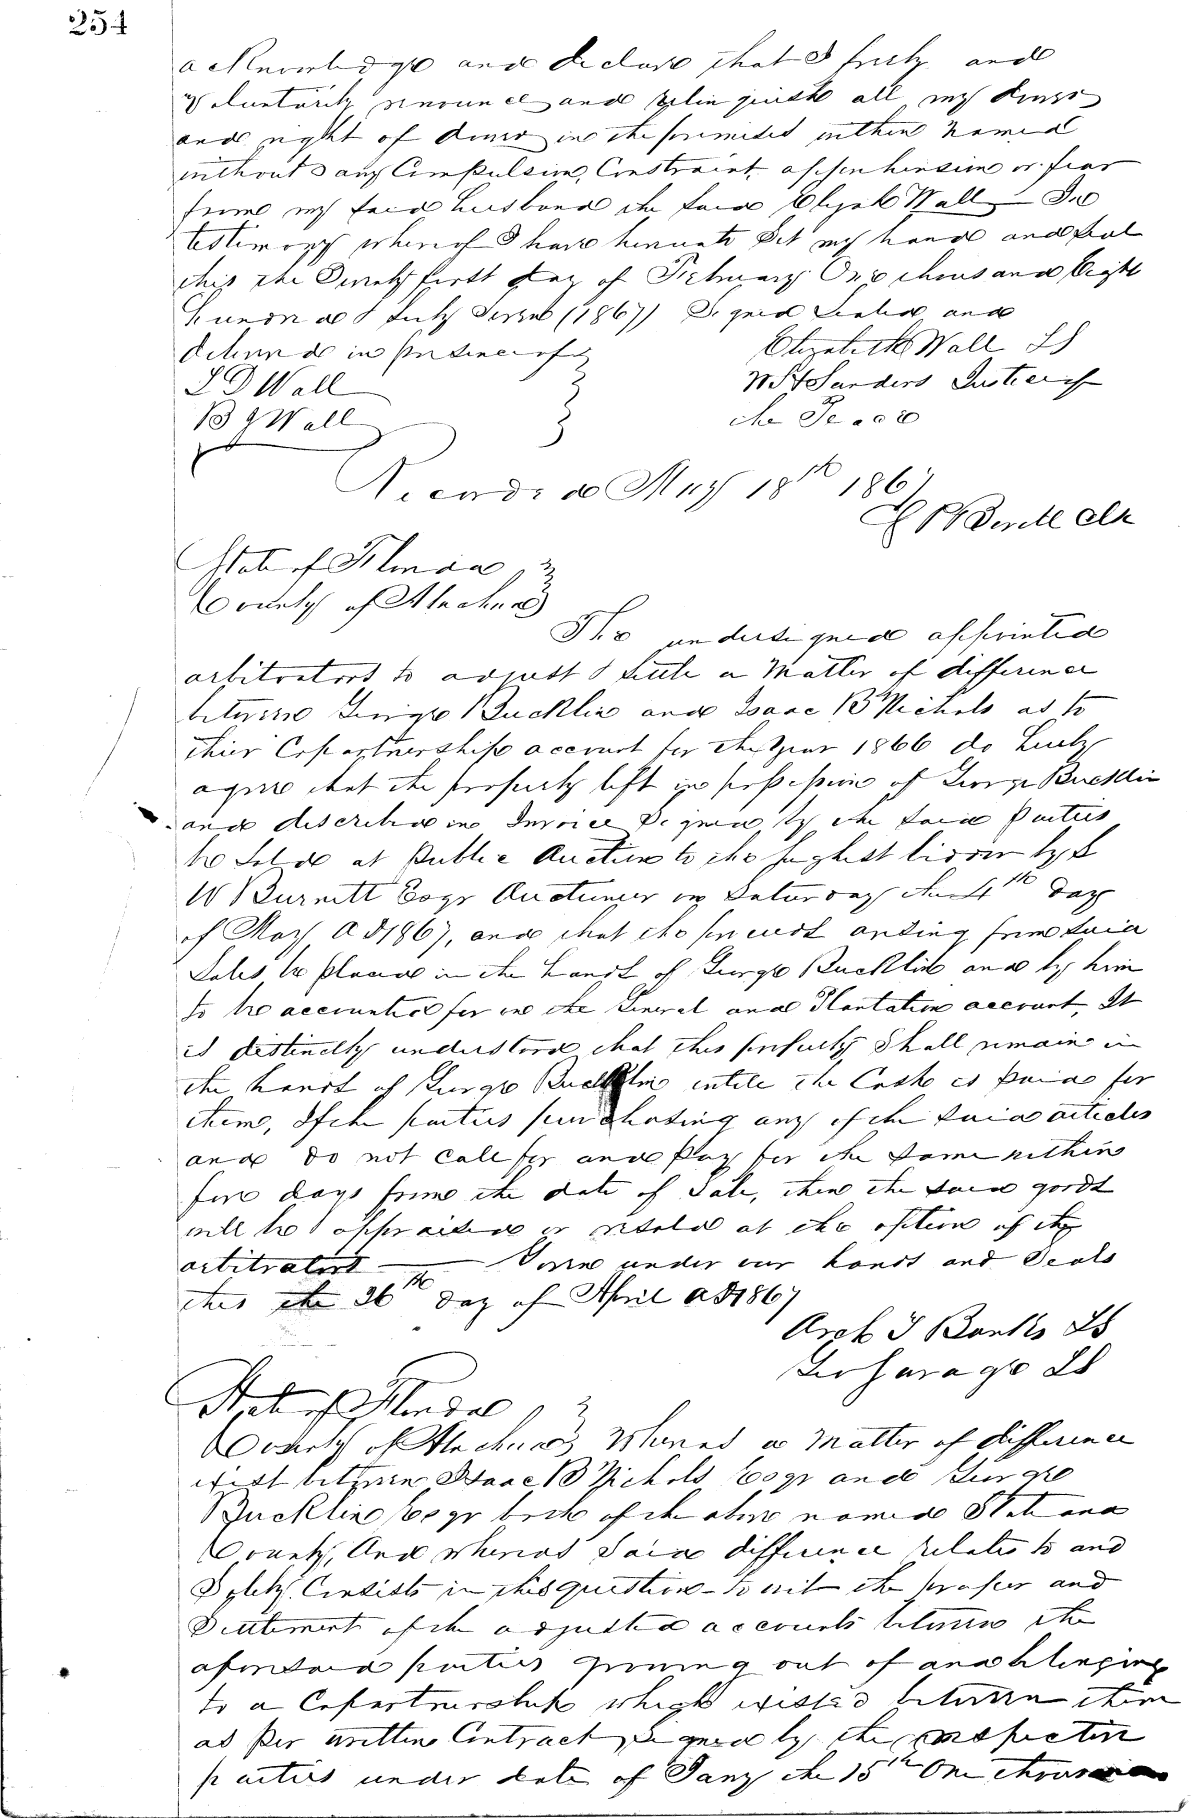 254
acknowledge and declare that I freely and
voluntarily renounce and relinquish all my dower
and right of dower in the premises within named
without any Compulsion, Constraint, apprehension or fear
from my said husband the said Elijah Wall — In
testimony whereof I have hereunto Set my hand and seal
this the Twenty first day of February One thousand Eight
hundred & Sixty Seven (1867) Signed Sealed and
delivered in presence of
Elizabeth Wall LS
L D Wall
W H Sanders Justice of
B J Wall
the Peace
Recorded May 18th 1867
Clk
State of Florida
County of Alachua
The undersigned appointed
arbitrators to adjust & Settle a Matter of difference
between George Bucklin and Isaac B Nichols as to
thier Copartnership account for the Year 1866 do hereby
agree that the property left in possession of George Bucklin
and described in Invoice Signed by the said Parties
be Sold at Public Auction to the highest bidder by L
W Burnett Esqr Auctineer on Saturday the 4th day
of May AD 1867, and that the proceeds arising from Said
Sales be placed in the hands of George Bucklin and by him
to be accounted for in the General and Plantation account, It
is distinctly understood that this property Shall remain in
the hands of George Bucklin untill the Cash is paid for
them, If the parties purchasing any of the Said articles
and do not call for and pay for the Same within
five days from the date of Sale, then the Said goods
will be appraised or resold at the option of the
arbitrators — Given under our hands and Seals
this the 26th day of April AD 1867
Arch T Banks LS
Geo Savage LS
State of Florida
County of Alachua Whereas a Matter of difference
exist between Isaac B Nichols Esqr and George
Bucklin Esqr both of the above named State and
County, And Whereas Said difference relates to and
Solely Consists in this question to wit the proper and
Settlement of the adjusted accounts between the
aforesaid parties growing out of and belonging
to a Copartnership which existed between them
as per written Contract Signed by the respective
parties under date of Jany the 15th One thousand